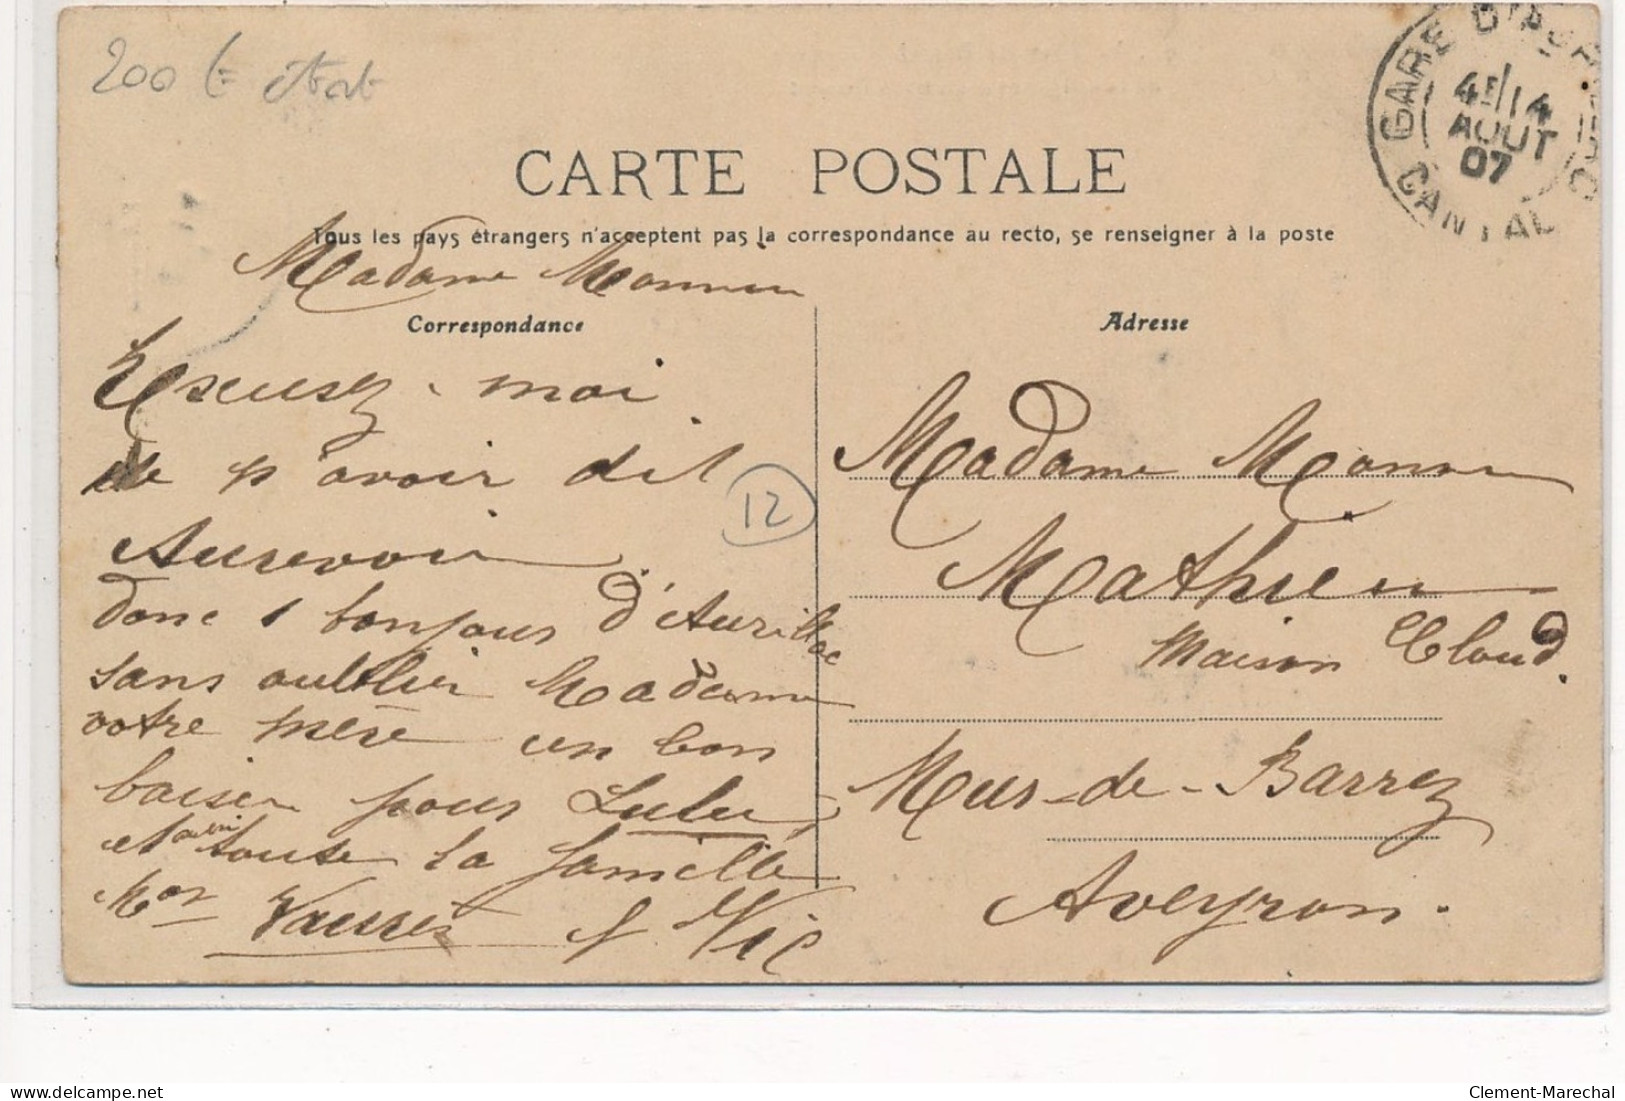 200 E état
GARE D'
4E/14
AOUT
07
CANTAL
CARTE POSTALE
Tous les pays étrangers n'acceptent pas la correspondance au recto, se renseigner à la poste
Madame Monnu
Correspondance
Excusez-moi
de n'avoir dit
Aurevoir
donc 1 bonjour d'Aurillac
sans oublier Madame
votre mère un bon
baiser pour Lulu
et ami toute la famille
12
Adresse
Madame Monnu
Mathieu
Maison Cloud.
Mur-de-Barrez
Aveyron.
delcampe.net
Clement-Marechal